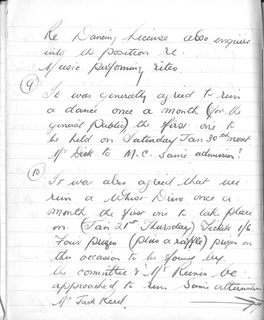 Re Dancing License also enquire
into the position re
Music performing rites
9 It was generally agreed to run
a dance once a month (for the
general Public) the first one to
be held on Saturday Jan 30th next
Mr Dick to M.C. Same admission!
10 It was also agreed that we
run a Whist Drive once a
month the first one to take place
on (Jan 21st Thursday) Tickets 1/6
Four prizes (plus a raffle) prizes on
this occasion to be given by
the committee & Mr be
approached to run same alternative
Mr Jack